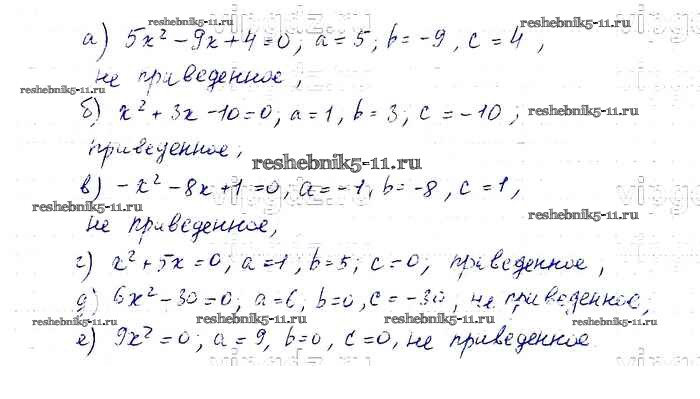 reshebnik5-11.ru
а) 5x² - 9x + 4 = 0; a = 5; b = -9, c = 4,
не приведенное,
reshebnik5-11.ru
б) x² + 3x - 10 = 0; a = 1, b = 3; c = -10; reshebnik5-11.ru
приведенное;
reshebnik5-11.ru
в) -x² - 8x + 1 = 0, a = -1, b = -8, c = 1,
reshebnik5-11.ru reshebnik5-11.ru
не приведенное,
г) x² + 5x = 0; a = 1, b = 5; c = 0, приведенное,
д) 6x² - 30 = 0; a = 6, b = 0, c = -30, не приведенное,
reshebnik5-11.ru reshebnik5-11.ru reshebnik5-11.ru reshebnik5-11.ru
е) 9x² = 0; a = 9, b = 0, c = 0, не приведенное